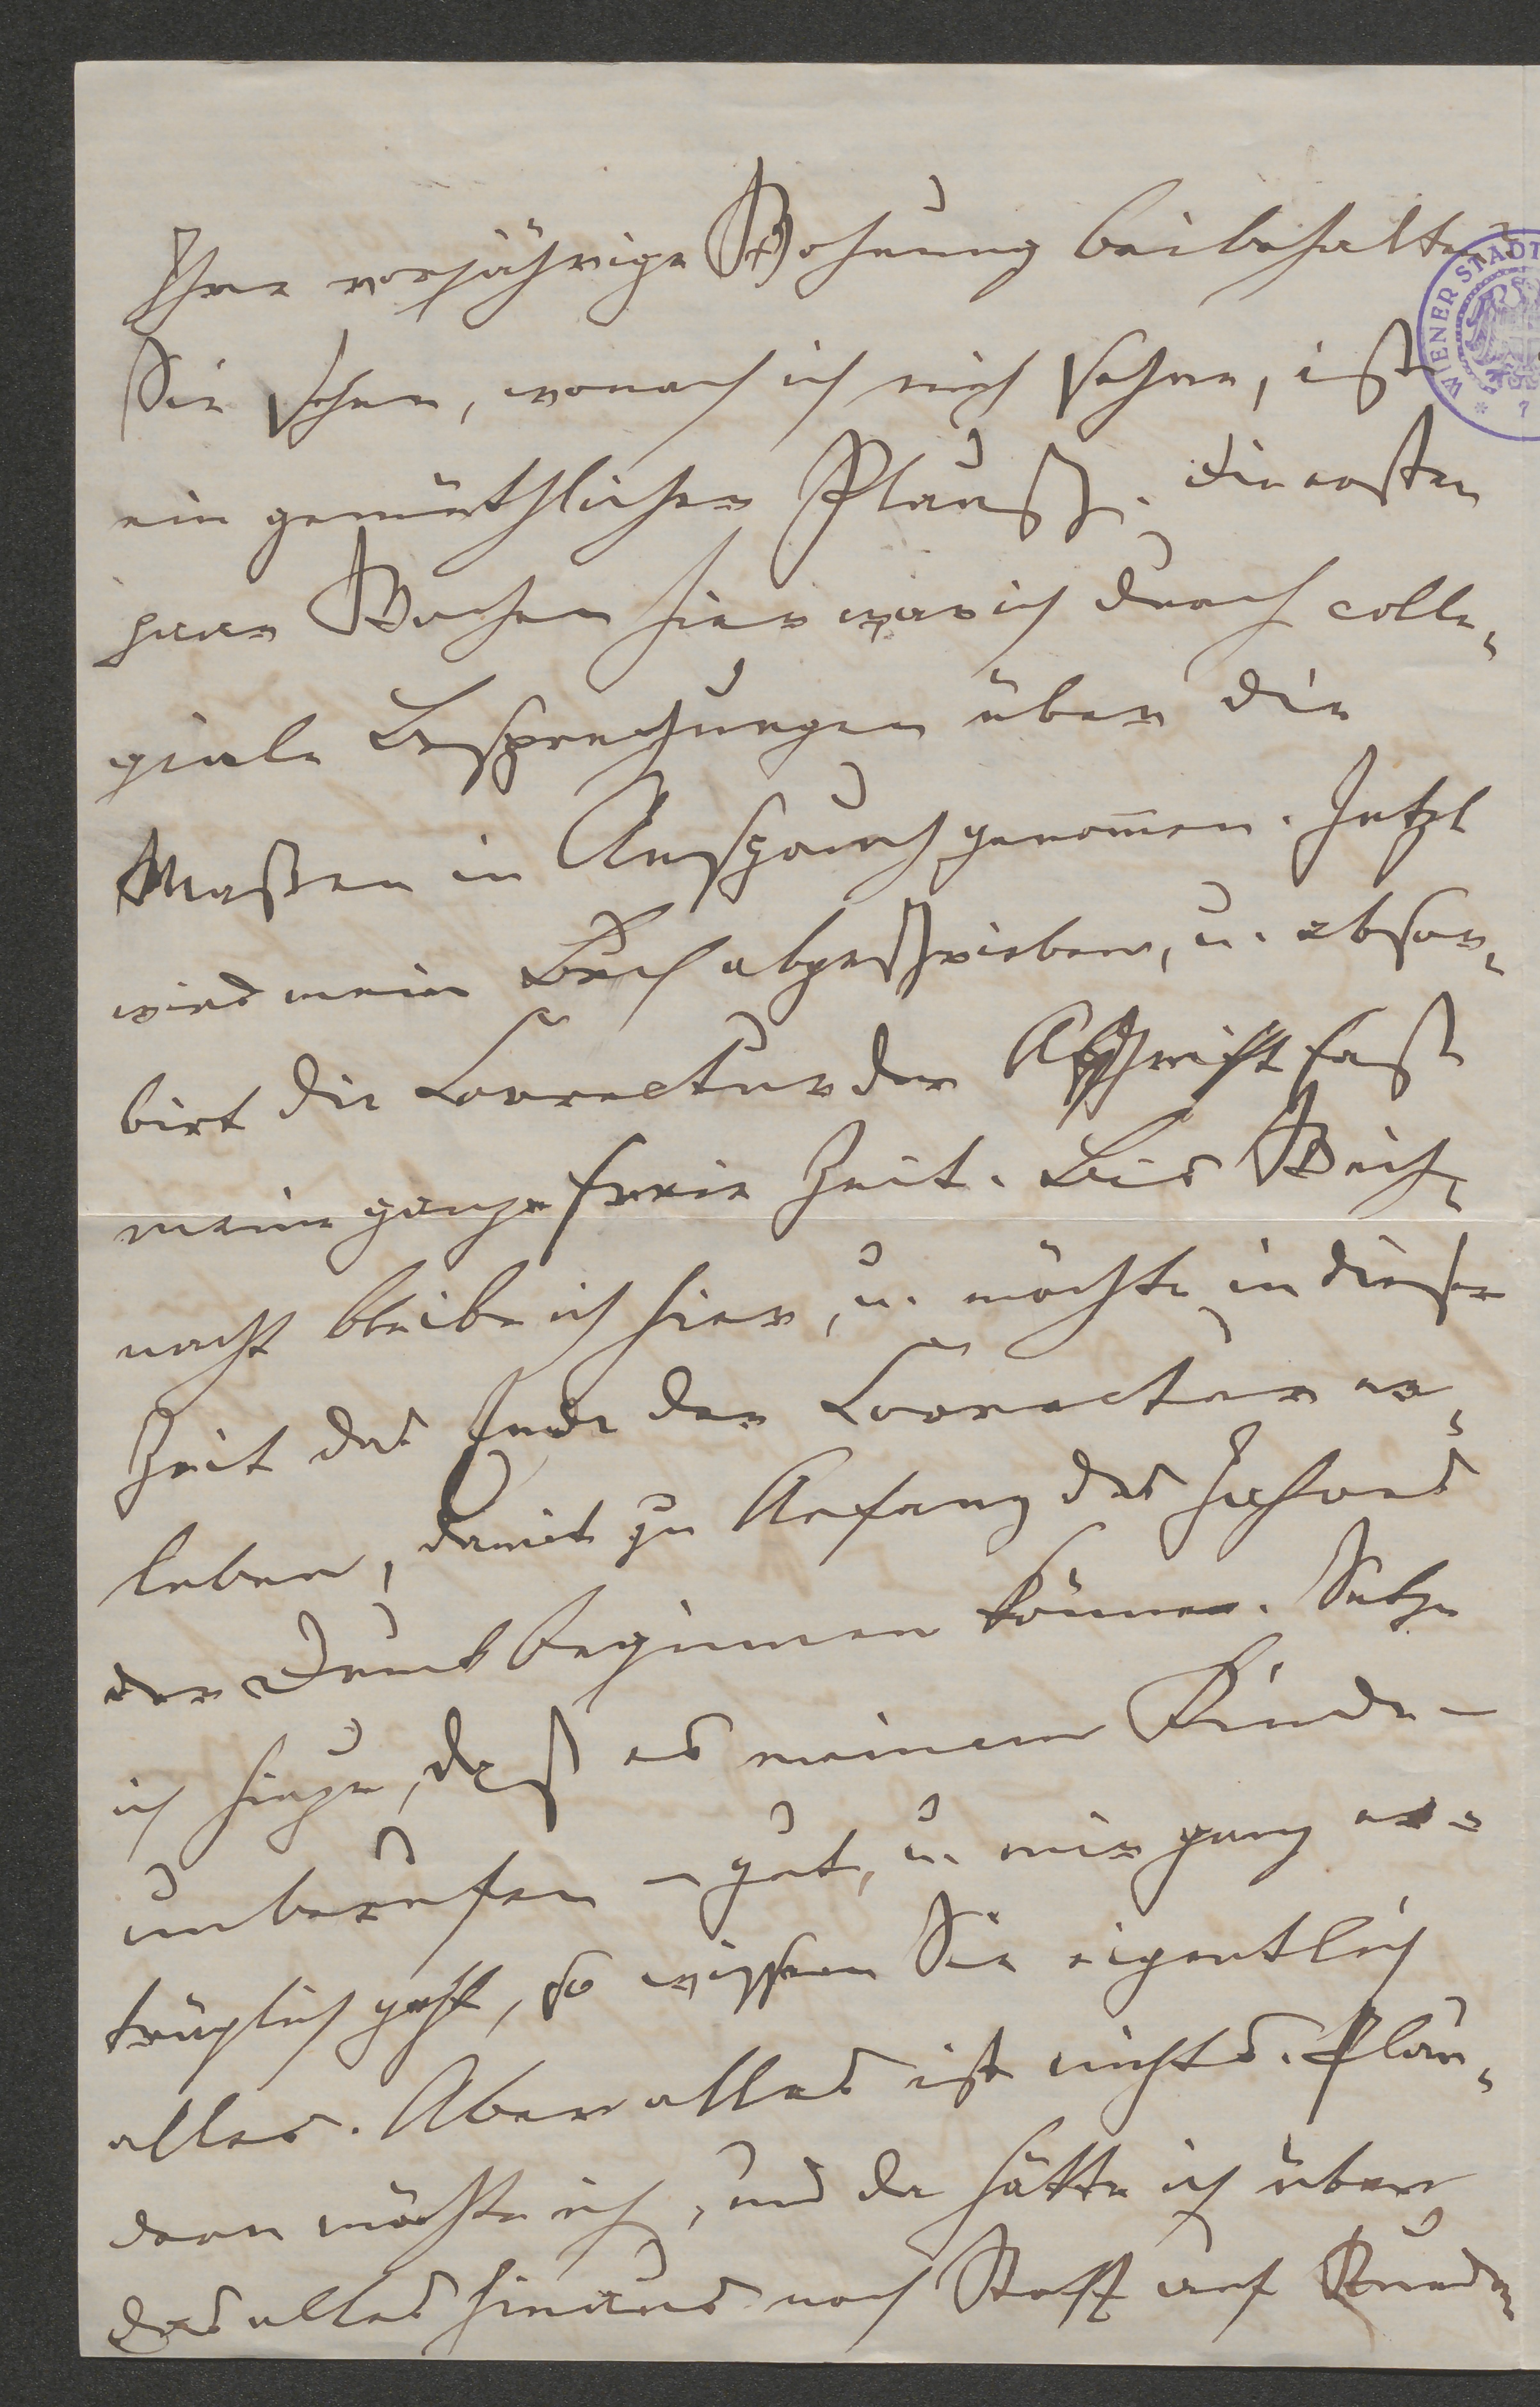 Ihre vorjährige Wohnung beibehalten?
Sie sehen, wonach ich mich sehne, ist
ein gemüthlicher Plausch. Die ersten
paar Wochen hier war ich durch colle-
giale Besprechungen über die
Maßen in Anspruch genom̄en. Jetzt
wird mein Buch abgeschrieben, u. absor-
birt die Correctur der Abschrift fast
meine ganze freie Zeit. Bis Weih-
nacht bleibe ich hier, u. möchte in dieser
Zeit das Ende der Correctur er-
leben, damit zu Anfang des Jahres
der Druck beginnen könne. Setze
ich hinzu, daß es meinem Kinde –
unberufen – gut, u. mir ganz er-
träglich geht, so wissen Sie eigentlich
alles. Aber alles ist nichts. Plau-
dern möchte ich, und da hätte ich über
das alles hinaus noch Stoff auf Stunden
WIENER STADT
* 7